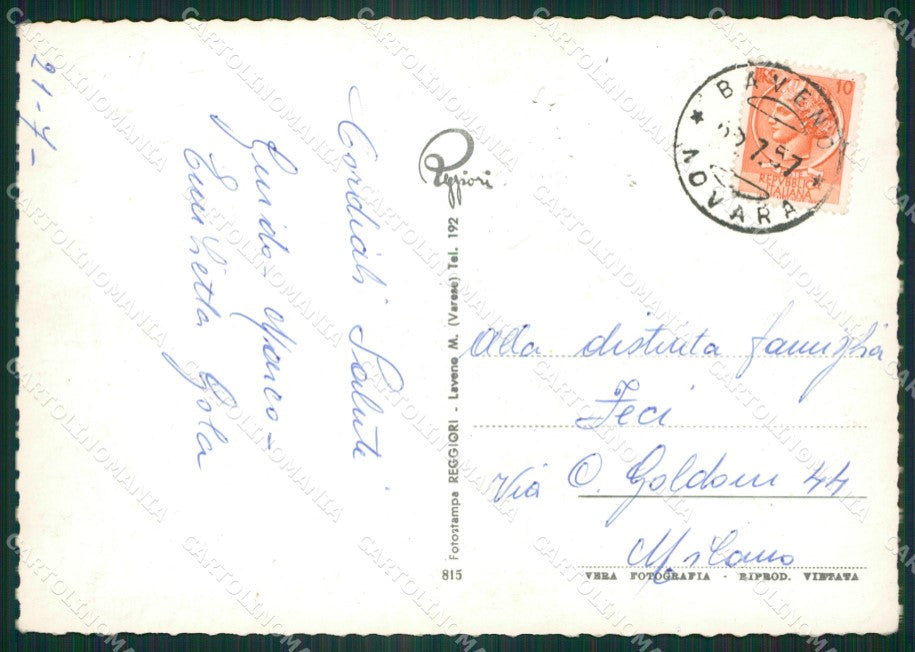 21-7-
Cordiali Saluti
Guido - Marco -
Enrichetta Gola
Reggiori
Fotostampa REGGIORI - Laveno M. (Varese) Tel. 192
815
BAVENO
7.57
NOVARA
10
REPUBBLICA
ITALIANA
Alla distinta famiglia
Feci
Via C. Goldoni 44
Milano
VERA FOTOGRAFIA - RIPROD. VIETATA
CARTOLINOMANIA